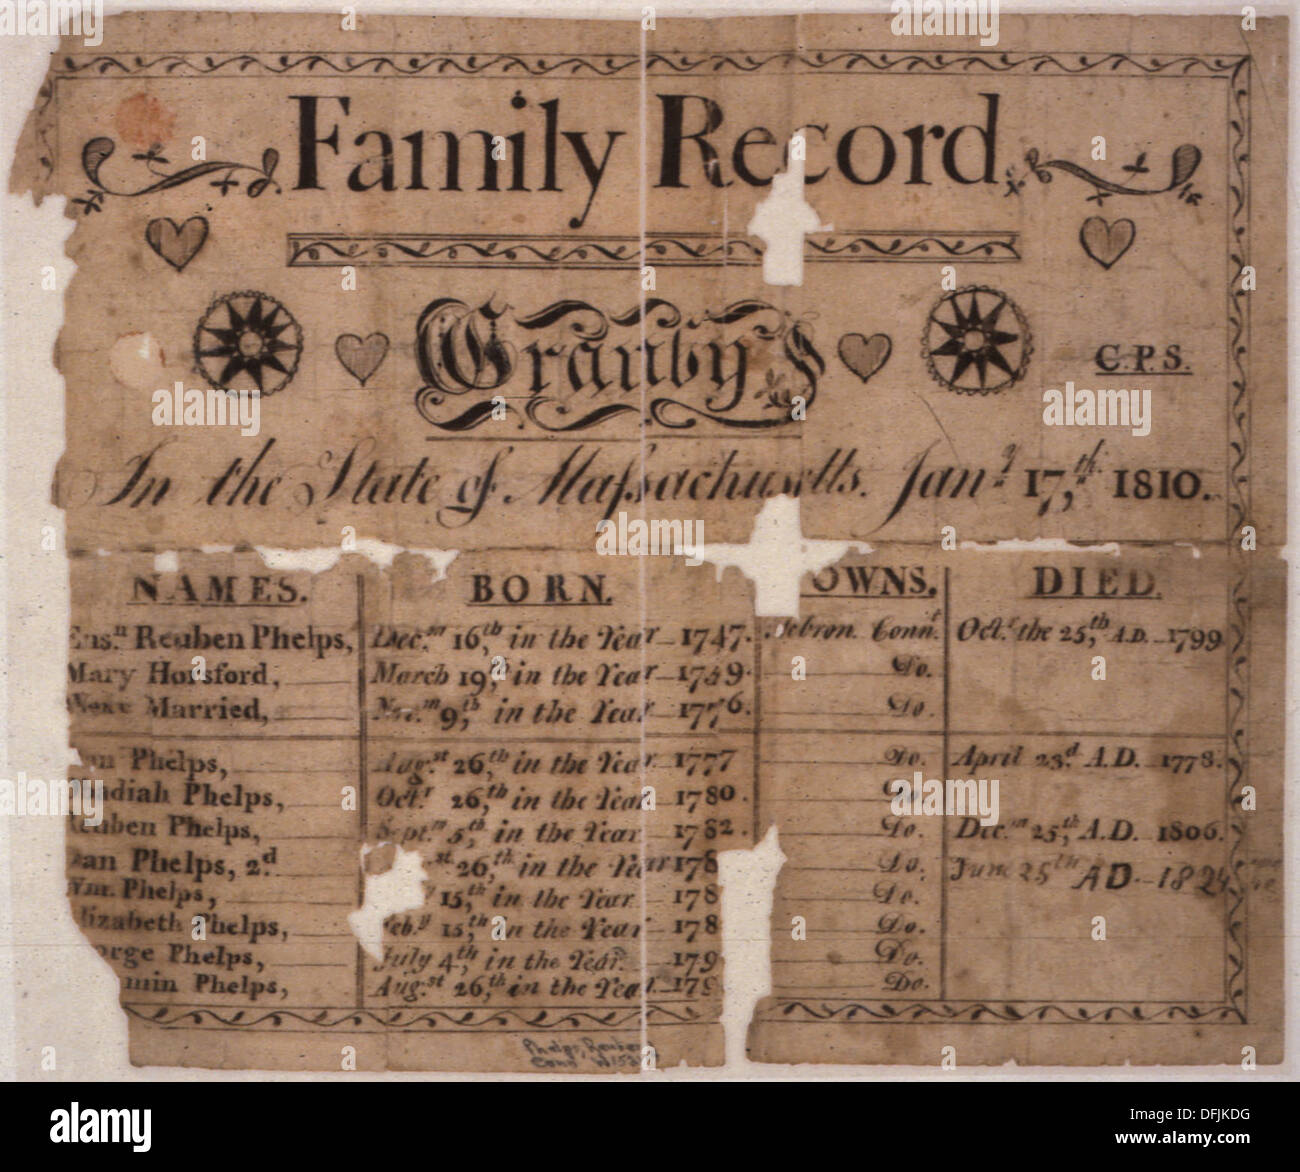 Family Record.
Granby's
C.P.S.
In the State of Massachusetts. Jan.y 17,th 1810.
NAMES. BORN. OWNS. DIED.
Ens.n Reuben Phelps, Dec.m 16,th in the Year 1747. Hebron. Conn.t Oct.r the 25,th A.D. 1799
Mary Horsford, March 19,th in the Year 1759. Do.
Were Married, Nov.m 9,th in the Year 1776. Do.
Phelps, Aug.st 26,th in the Year 1777 Do. April 23.d A.D. 1778.
badiah Phelps, Oct.r 26,th in the Year 1780. Do.
Reuben Phelps, Sept.m 5,th in the Year 1782. Do. Dec.m 25,th A.D. 1806.
an Phelps, 2.d st 26,th in the Year 178 Do. June 25th AD. 1824
Wm. Phelps, 15,th in the Year 178 Do.
lizabeth Phelps, Feb.y 15,th in the Year 178 Do.
orge Phelps, July 4,th in the Year 179 Do.
min Phelps, Aug.st 26,th in the Year 179 Do.
Phelps, Reuben
Conn
alamy
Image ID: DFJKDG
www.alamy.com